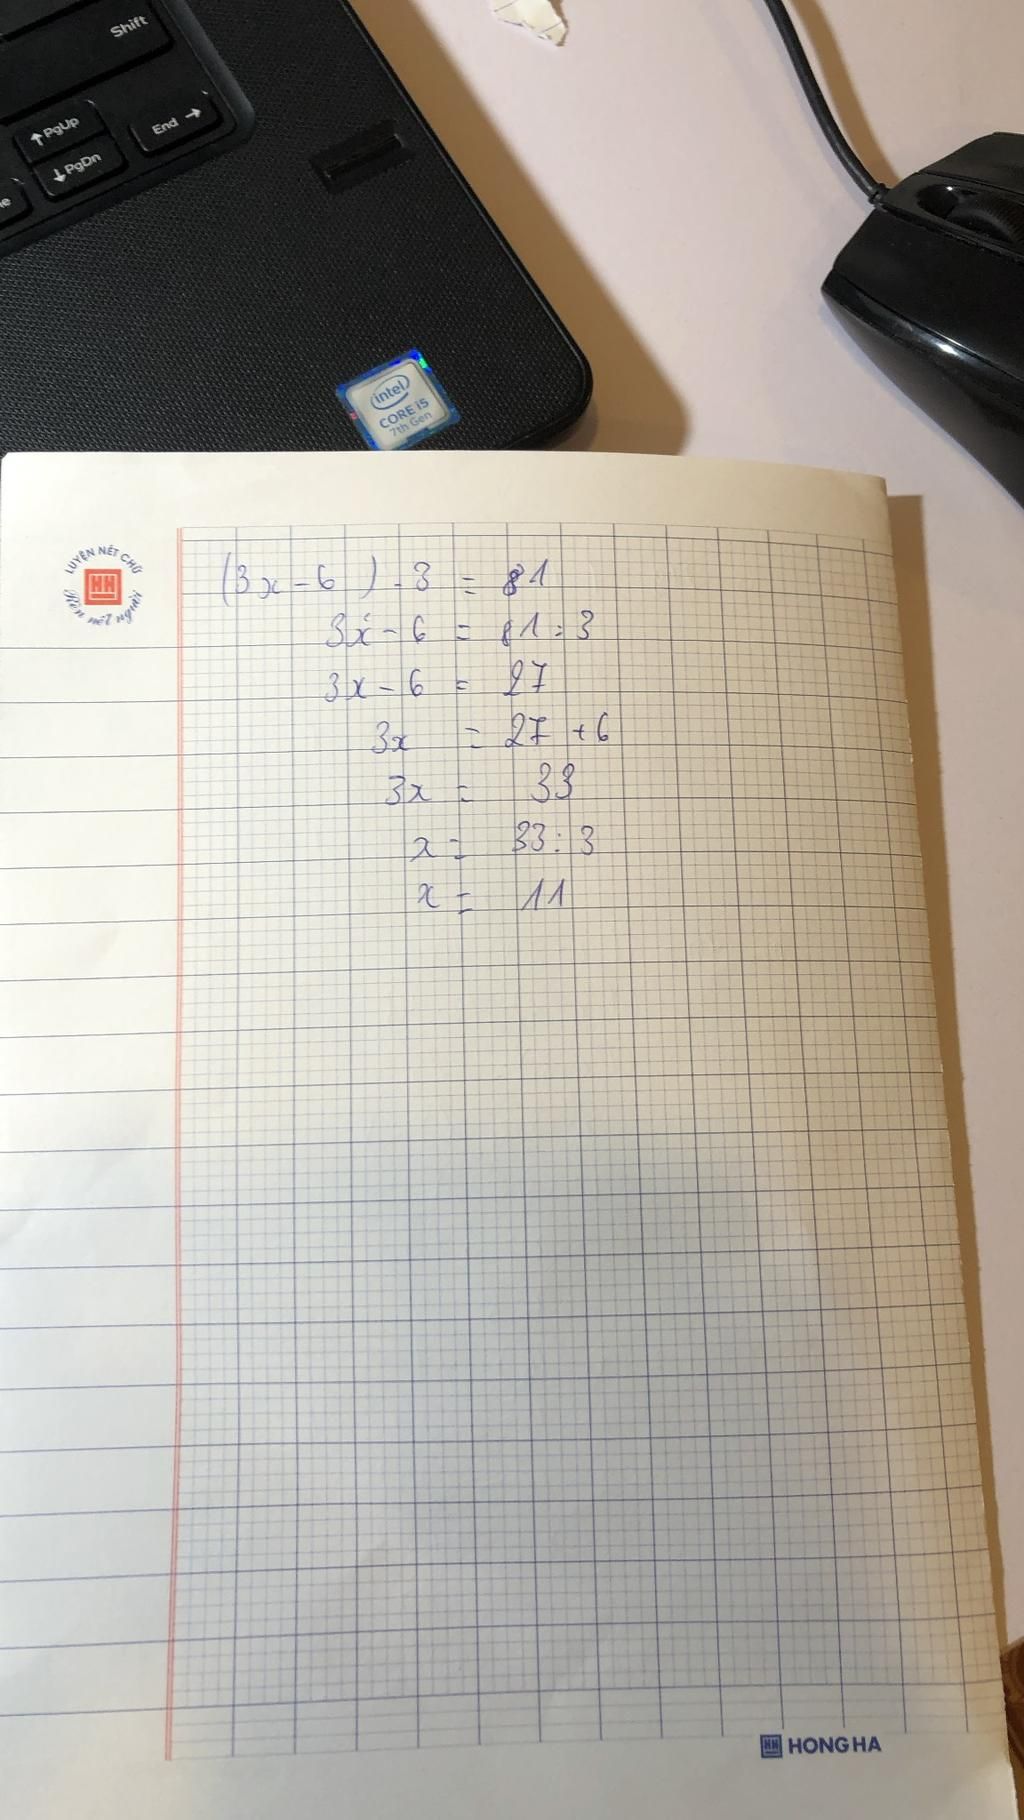 Shift
↑PgUp
End →
↓PgDn
intel
CORE i5
7th Gen
LUYỆN NÉT CHỮ
HH
Rèn nết người
(3x - 6) . 3 = 81
3x - 6 = 81 : 3
3x - 6 = 27
3x = 27 + 6
3x = 33
x = 33 : 3
x = 11
HH HONG HA